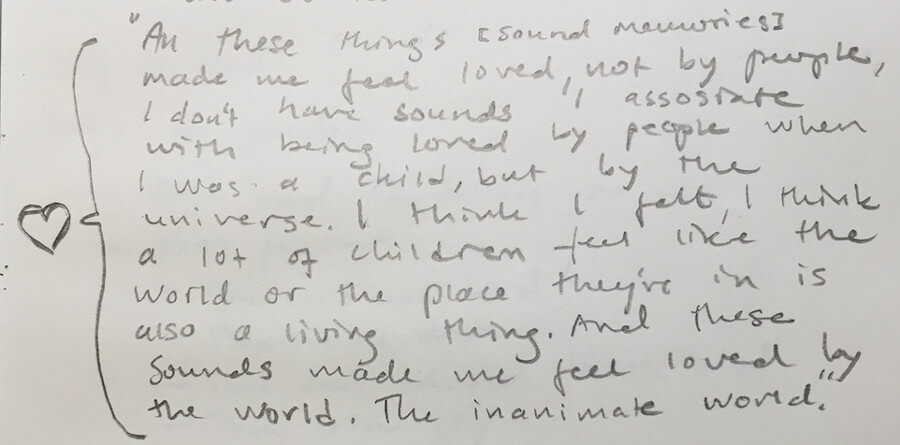 "All these things [sound memories]
made me feel loved, not by people,
I don't have sounds I assosiate
with being loved by people when
I was a child, but by the
universe. I think I felt, I think
a lot of children feel like the
world or the place they're in is
also a living thing. And these
sounds made me feel loved by
the world. The inanimate world."